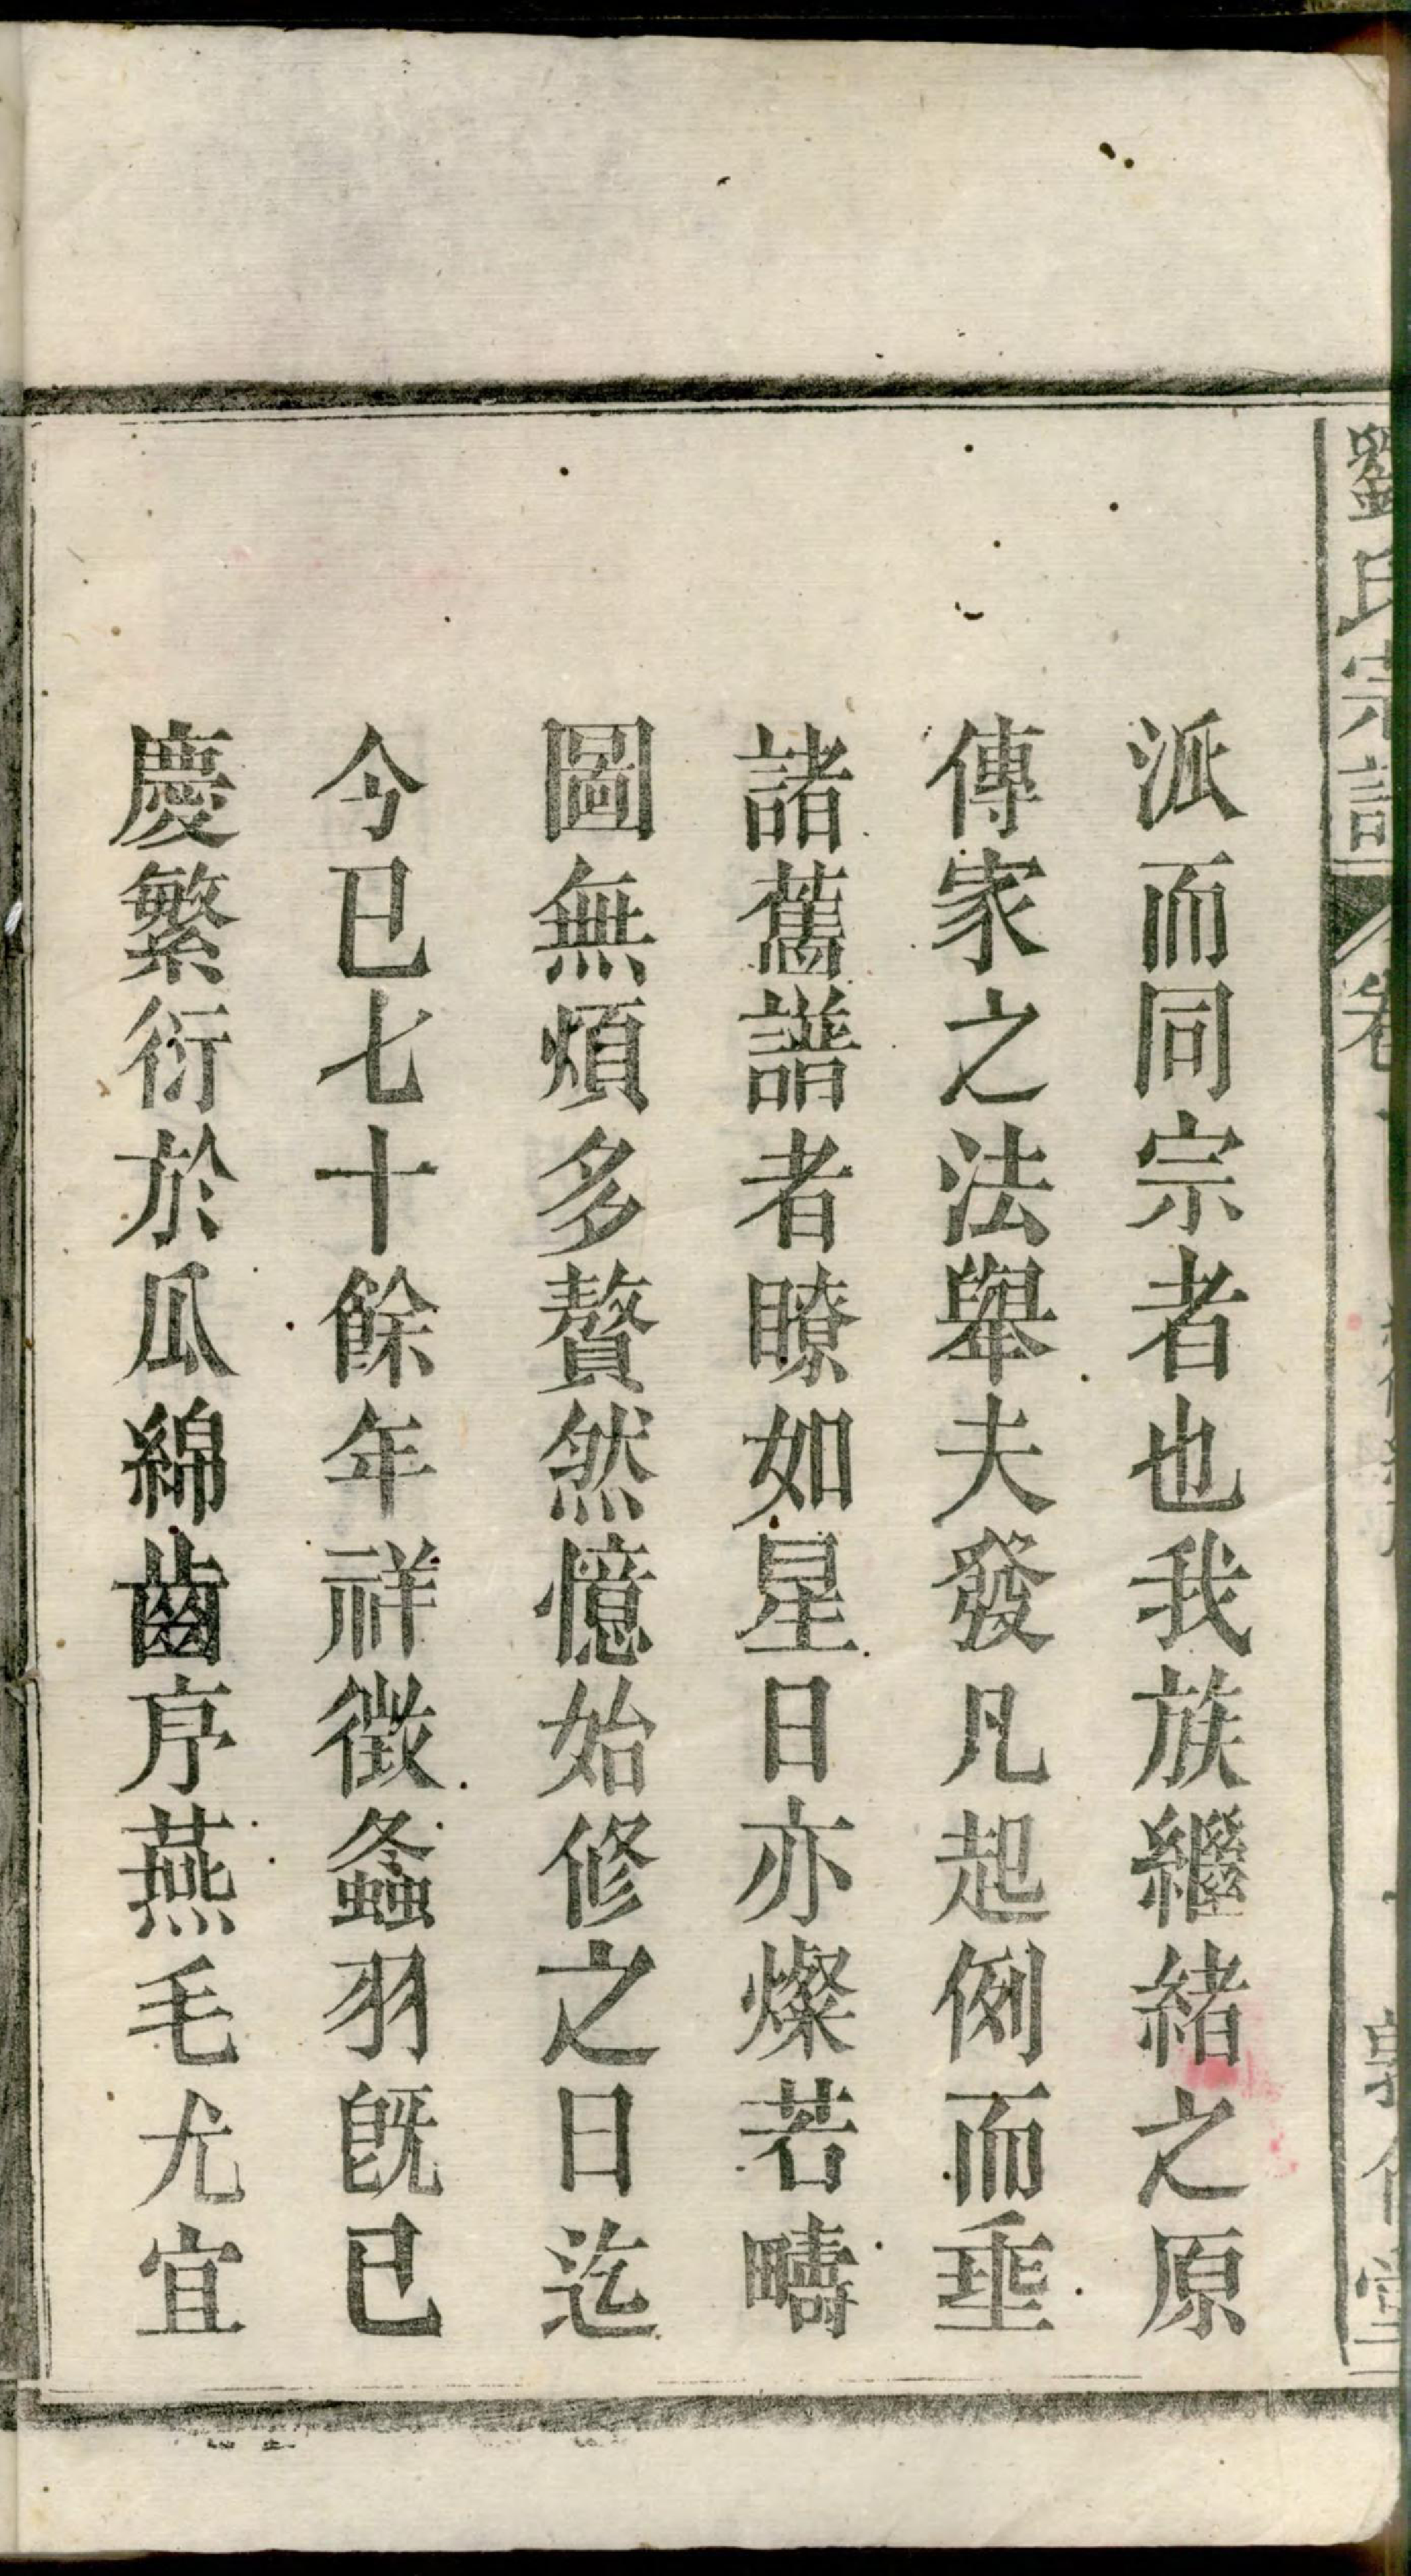 派而同宗者也我族繼緒之原
傳家之法舉夫發凡起例而垂
諸舊譜者瞭如星日亦燦若疇
圖無煩多贅然憶始修之日迄
今已七十餘年祥徵螽羽既已
慶繁衍於瓜綿齒序燕毛尤宜
劉氏宗譜 卷 堂